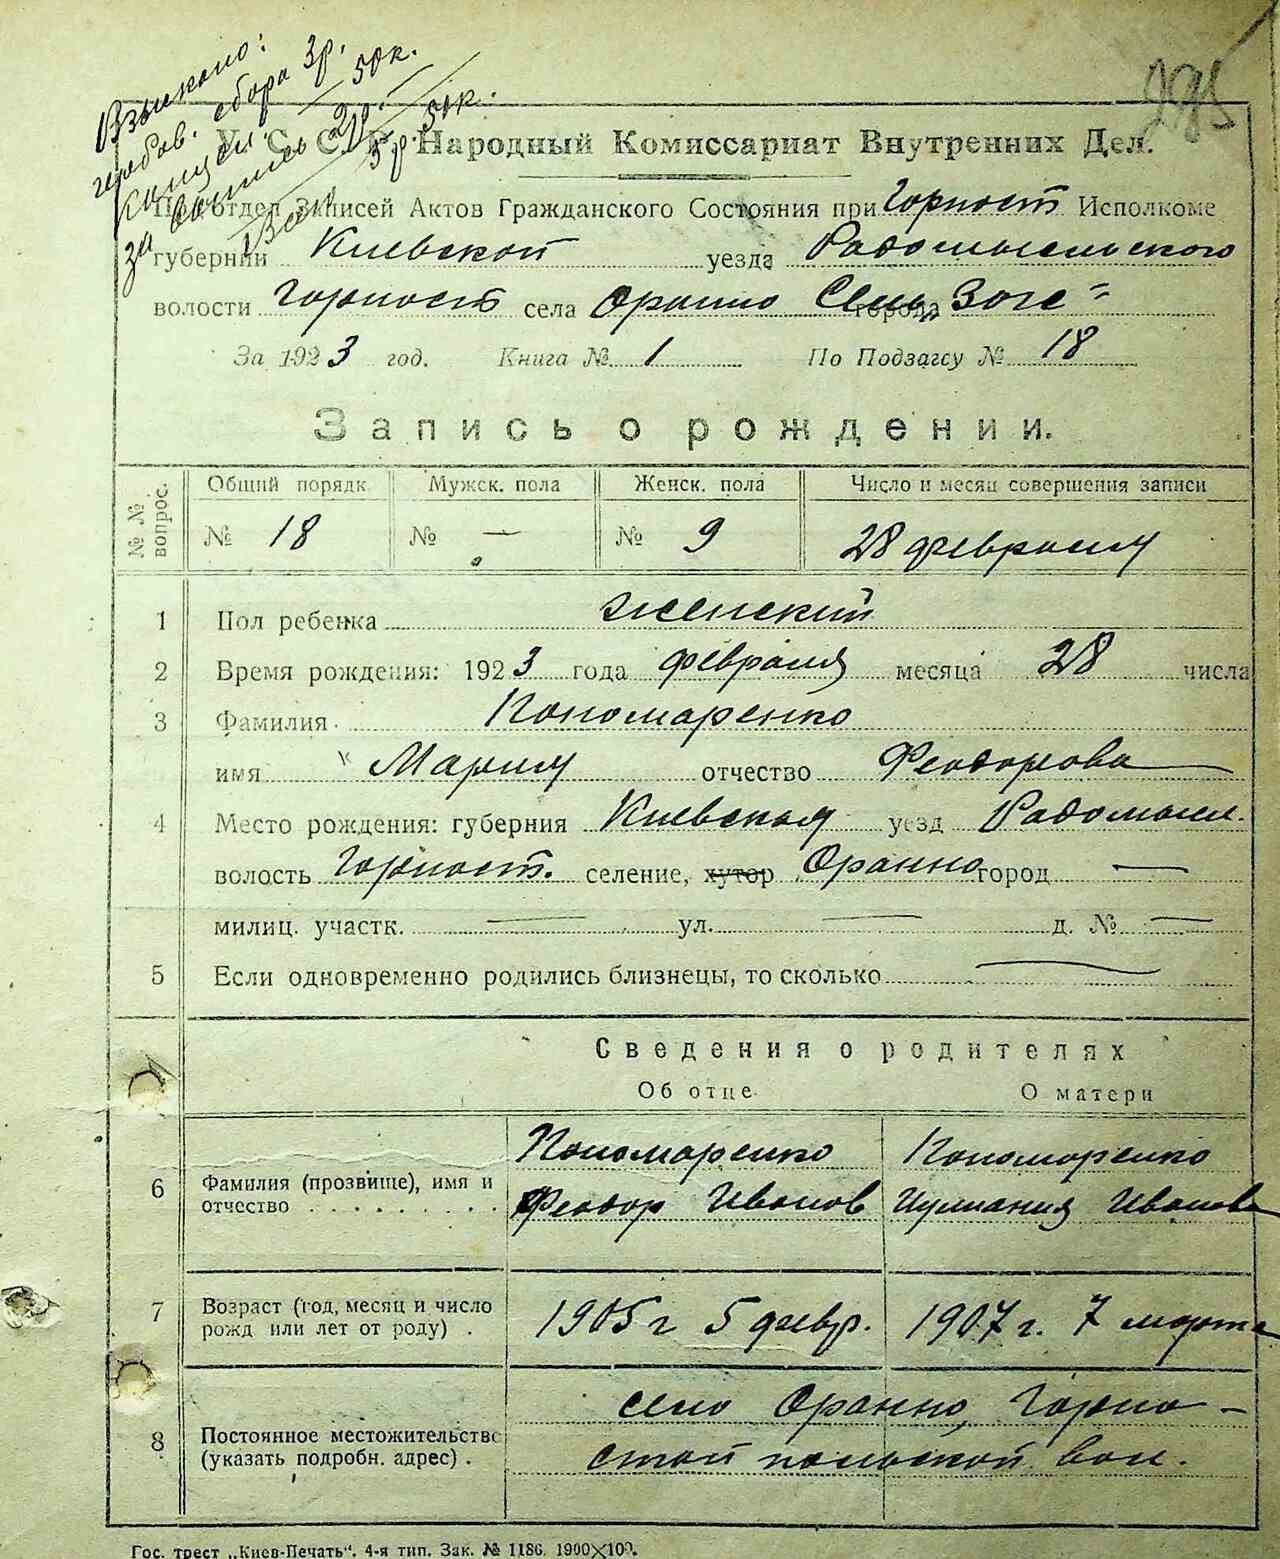 Взыскано:
гербов. сбора 3р.
Канцел. 50к.
за бланк 2р.
Всего 5р 50к.
285
У. С. С. Р. Народный Комиссариат Внутренних Дел.
Подотдел Записей Актов Гражданского Состояния при Горност Исполкоме
губернии Киевской уезда Радомысльского
волости Горност села Оранно города
За 1923 год. Книга № 1 По Подзагсу № 18
Запись о рождении.
№ № вопрос. Общий порядк Мужск. пола Женск. пола Число и месяц совершения записи
№ 18 № — № 9 28 февраля
1 Пол ребенка женский
2 Время рождения: 1923 года февраля месяца 28 числа
3 Фамилия Пономаренко
имя Мария отчество Феодорова
4 Место рождения: губерния Киевская уезд Радомысл.
волость Горност. селение, хутор Оранно город —
милиц. участк. — ул. — д. № —
5 Если одновременно родились близнецы, то сколько —
Сведения о родителях
Об отце О матери
Пономаренко Пономаренко
6 Фамилия (прозвище), имя и
отчество . . . . . . . . . Феодор Иванов Иулиания Иванова
7 Возраст (год, месяц и число
рожд или лет от роду) . 1905 г 5 февр. 1907 г. 7 марта
село Оранно, Горно-
8 Постоянное местожительство
(указать подробн. адрес) . стайпольской вол.
Гос. трест „Киев-Печать“. 4-я тип. Зак. № 1186. 1900×100.